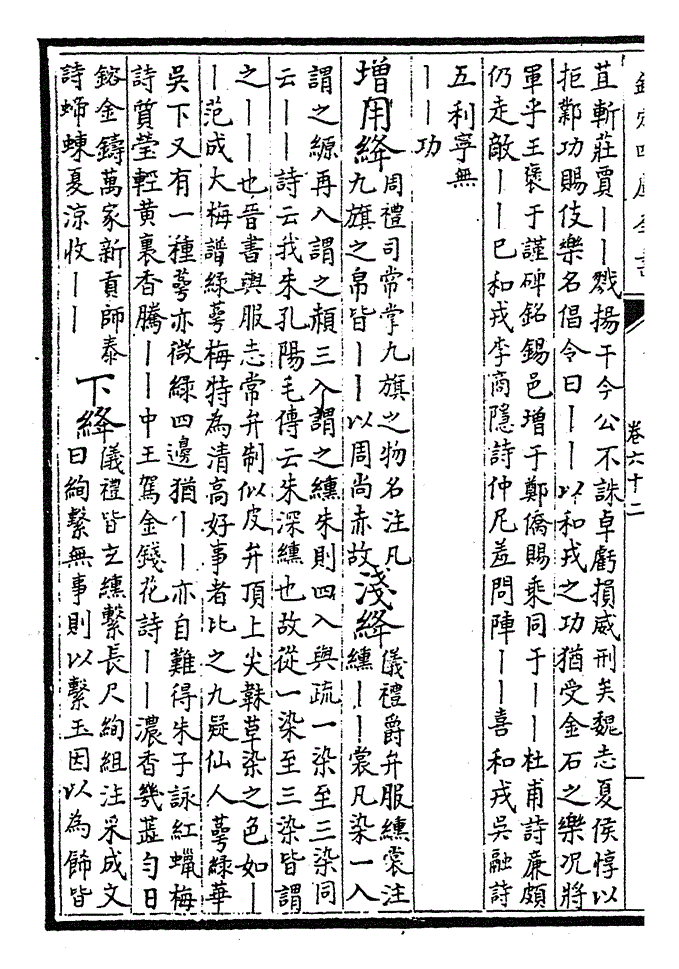 欽定四庫全書
卷六十二
苴斬莊賈丨丨戮揚干今公不誅卓虧損威刑矣魏志夏侯惇以
拒鄴功賜伎樂名倡令曰丨丨以和戎之功猶受金石之樂况將
軍乎王襃于謹碑銘錫邑增于鄭僑賜乘同于丨丨杜甫詩廉頗
仍走敵丨丨已和戎李商隱詩仲尼羞問陣丨丨喜和戎吳融詩
五利寧無
丨丨功
增用絳
周禮司常掌九旗之物名注凡
九旗之帛皆丨丨以周尚赤故
淺絳
儀禮爵弁服纁裳注
纁丨丨裳凡染一入
謂之縓再入謂之赬三入謂之纁朱則四入與疏一染至三染同
云丨丨詩云我朱孔陽毛傳云朱深纁也故從一染至三染皆謂
之丨丨也晉書輿服志常弁制似皮弁頂上尖韎草染之色如丨
丨范成大梅譜綠萼梅特為清高好事者比之九疑仙人萼綠華
吳下又有一種萼亦微綠四邊猶丨丨亦自難得朱子詠紅蠟梅
詩質瑩輕黃裏香騰丨丨中王駕金錢花詩丨丨濃香幾蘂勻日
鎔金鑄萬家新貢師泰
詩蝃蝀夏涼收丨丨
下絳
儀禮皆玄纁繫長尺絢組注采成文
曰絢繫無事則以繫玉因以為飾皆